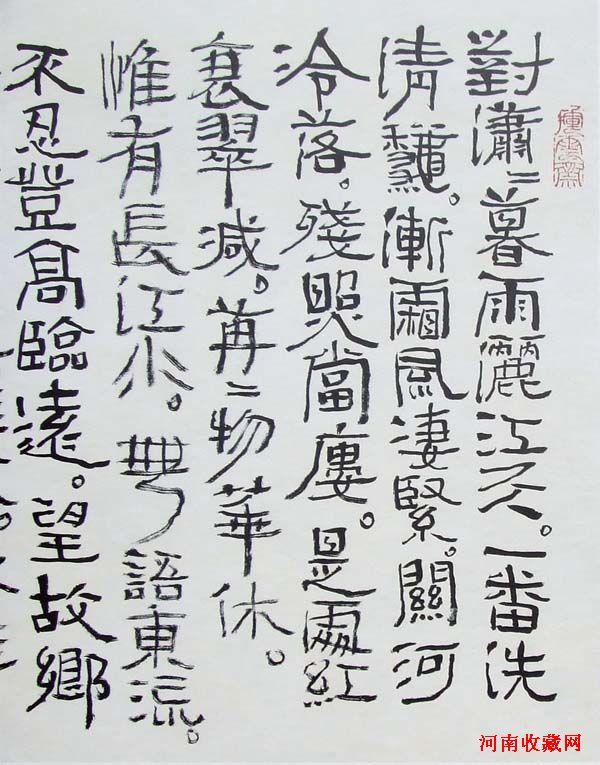 對瀟〻暮雨灑江天。一番洗
清龝。漸霜風淒緊。關河
冷落。殘照當廔。是處紅
衰翠減。苒〻物華休。
惟有長江水。無語東流。
不忍登高臨遠。望故鄉
河南收藏网